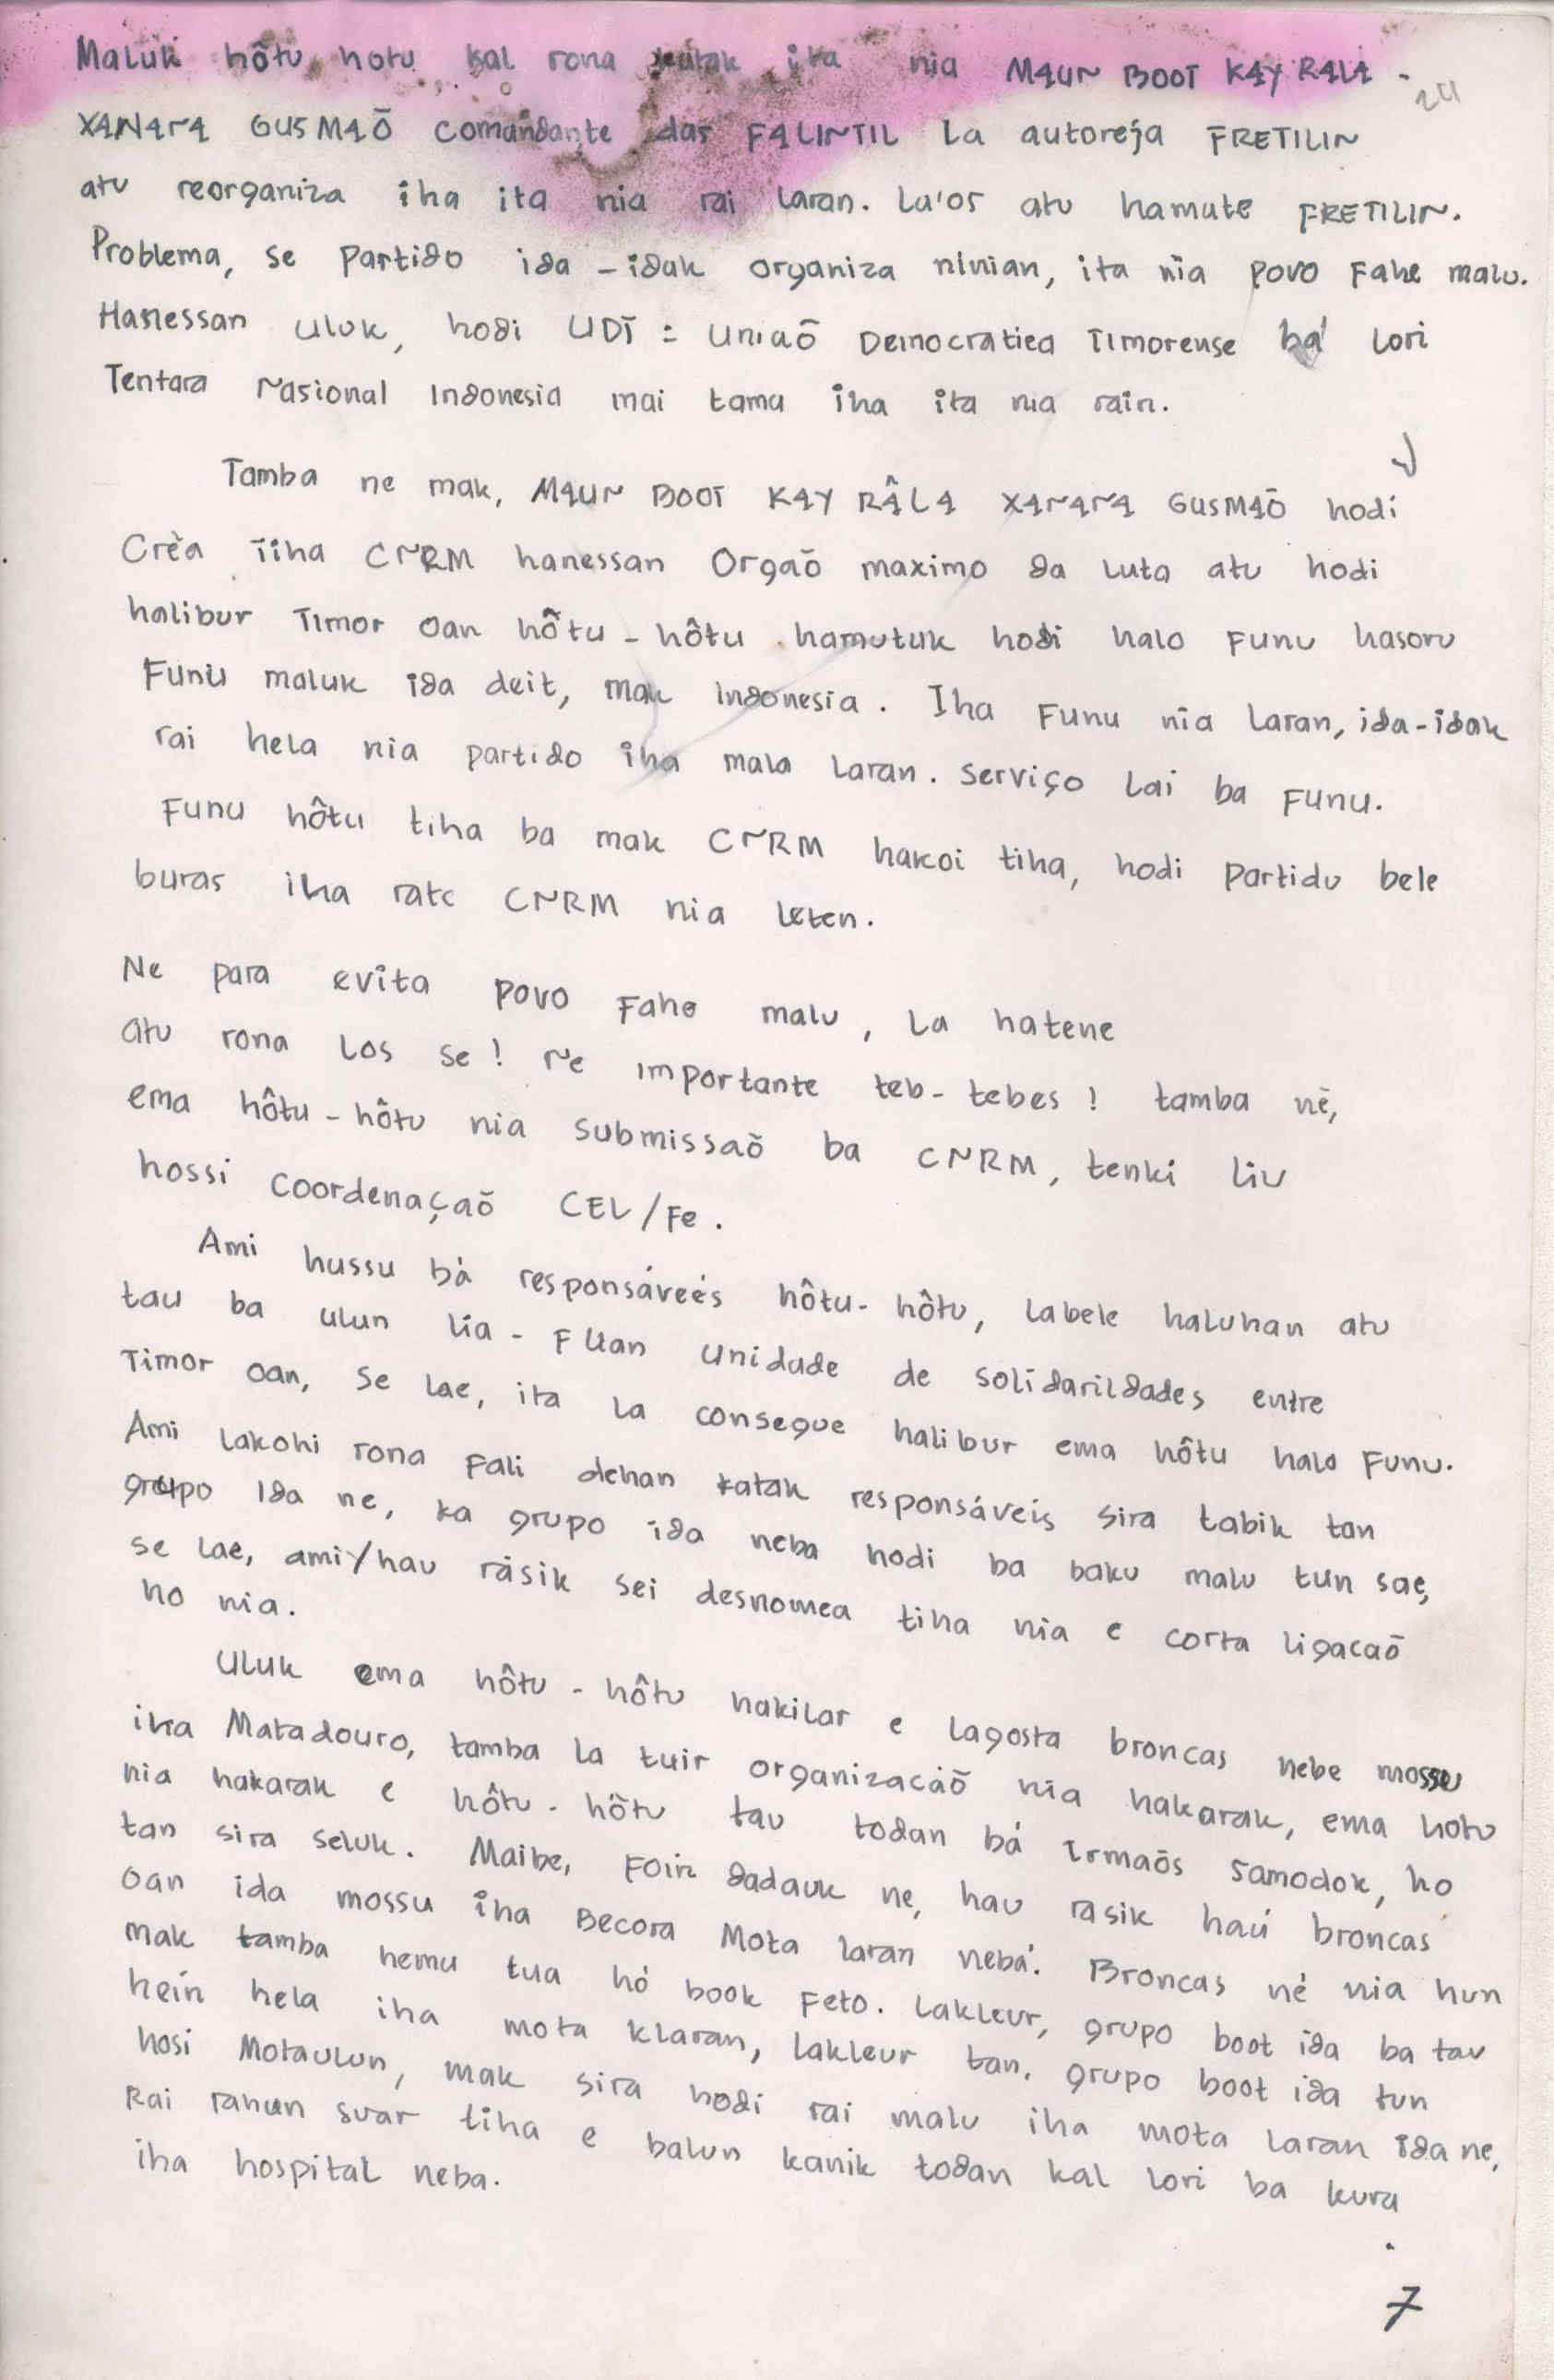 Maluk hôtu hotu kal rona katak ita nia MAUN BOOT KAY RALA -
24
XANANA GUSMAÕ comandante das FALINTIL la autoreja FRETILIN
atu reorganiza iha ita nia rai laran. La'os atu hamate FRETILIN.
Problema, se partido ida - idak organiza ninian, ita nia povo fahe malu.
Hanessan uluk, hodi UDT = Uniaõ Democratica Timorense bá lori
Tentara Nasional Indonesia mai tama iha ita nia rain.
Tamba ne mak, MAUN BOOT KAY RÂLA XANANA GUSMAÕ hodi
Crèa tiha CNRM hanessan Orgaõ maximo da luta atu hodi
halibur Timor Oan hôtu - hôtu hamutuk hodi halo funu hasoru
Funu maluk ida deit, mak Indonesia. Iha funu nia laran, ida-idak
rai hela nia partido iha mala laran. Serviço lai ba funu.
Funu hôtu tiha ba mak CNRM hakoi tiha, hodi partidu bele
buras iha rate CNRM nia leten.
Ne para evita povo fahe malu, la hatene
atu rona los se! Ne importante teb-tebes! tamba né,
ema hôtu - hôtu nia submissaõ ba CNRM, tenki liu
hossi coordenaçaõ CEL/Fe.
Ami hussu bà responsáveés hôtu-hôtu, labele haluhan atu
tau ba ulun lia - fuan unidade de solidarildades entre
Timor oan, se lae, ita la consegue halibur ema hôtu halo funu.
Ami lakohi rona fali dehan katak responsáveis sira tabik tan
grupo ida ne, ka grupo ida neba hodi ba baku malu tun sae,
se lae, ami/hau rásik sei desnomea tiha nia e corta ligacaõ
ho nia.
Uluk ema hôtu - hôtu hakilar e lagosta broncas nebe mossu
iha Matadouro, tamba la tuir organizacaõ nia hakarak, ema hotu
nia hakarak e hôtu-hôtu tau todan bá Irmaõs Samodok, ho
tan sira seluk. Maibe, foin dadauk ne, hau rasik haú broncas
oan ida mossu iha Becora Mota laran nebá. Broncas né nia hun
mak tamba hemu tua hó book feto. Lakleur, grupo boot ida ba tau
hein hela iha mota klaran, lakleur tan, grupo boot ida tun
hosi Motaulun, mak sira hodi rai malu iha mota laran ida ne,
Rai rahun suar tiha e balun kanik todan kal lori ba kura
iha hospital neba.
7